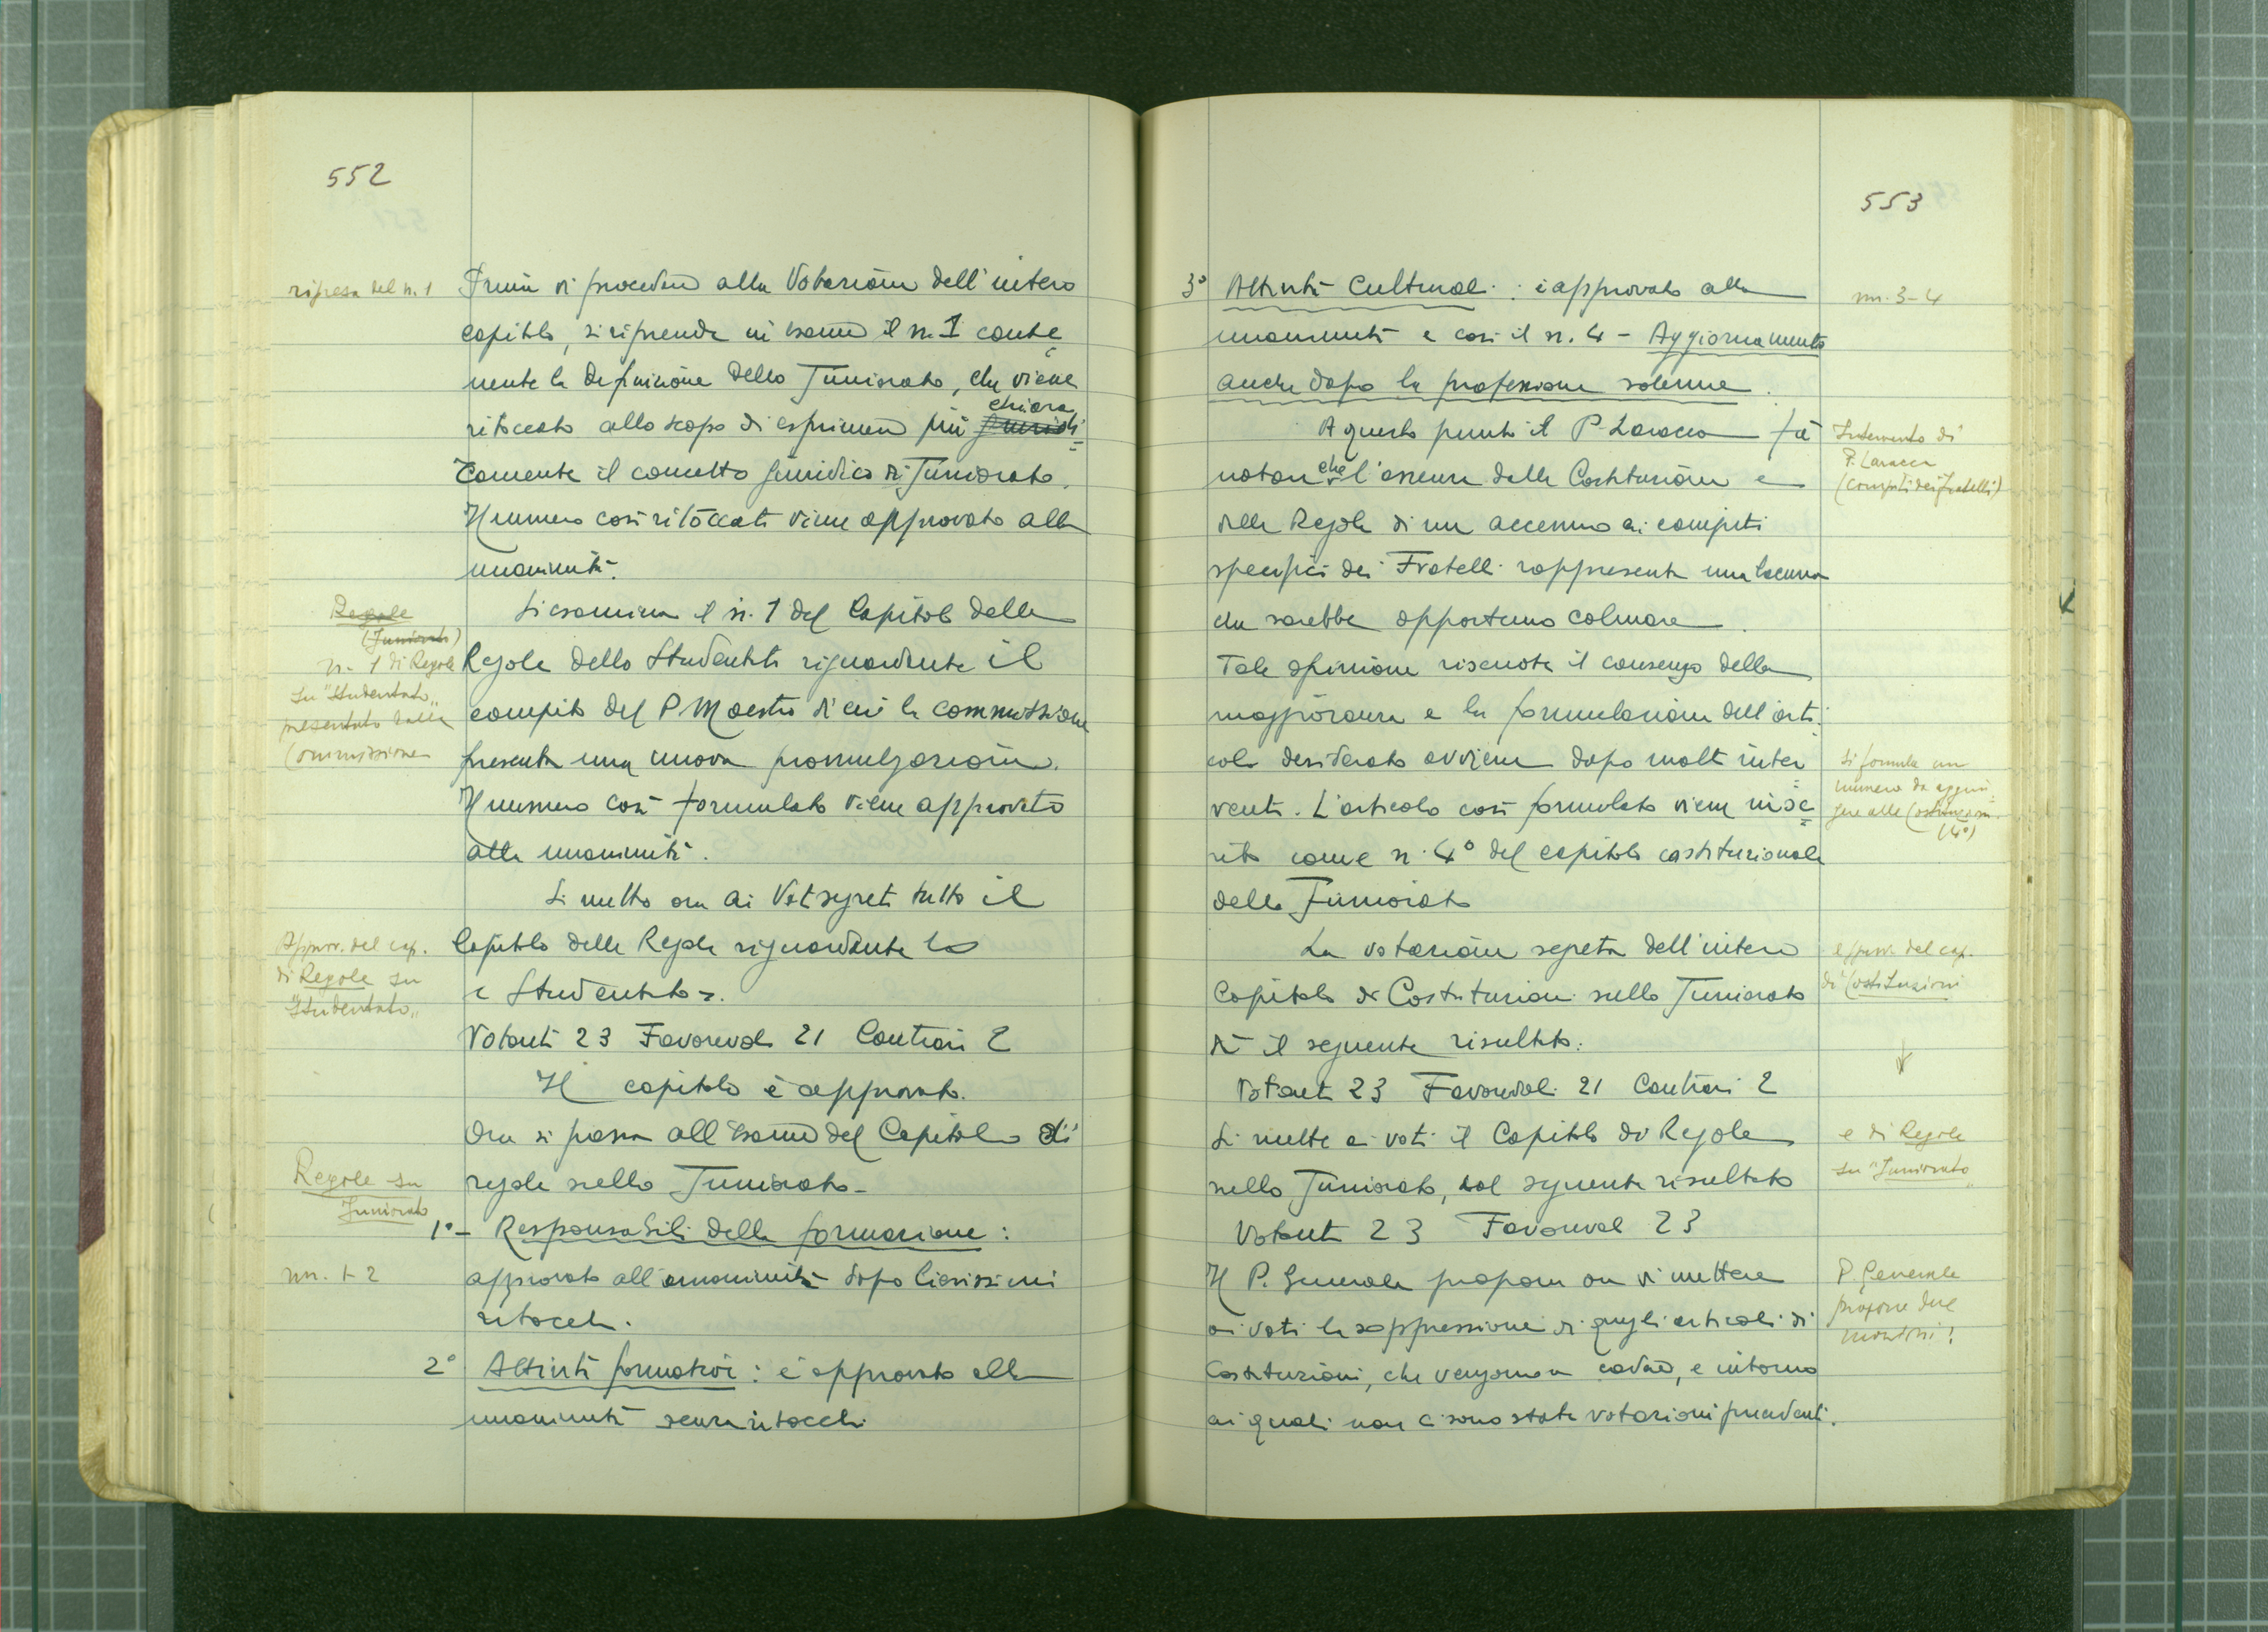 552
ripresa del n. 1
Prima di procedere alla Votazione dell'intero
capitolo, si riprende in esame il n. 1 conte
nente la definizione dello Juniorato, che viene
chiara
ritoccato allo scopo di esprimere più giuridi
camente il concetto giuridico di Juniorato.
Il numero così ritoccato viene approvato alla
unanimità.
Regole
(Juniorato)
n. 1 di Regole
su "Studentato"
presentato dalla
Commissione
Si esamina il n. 1 del Capitolo delle
Regole dello Studentato riguardante il
compito del P Maestro di cui la commissione
presenta una nuova promulgazione.
Il numero così formulato viene approvato
alla unanimità.
Si mette ora ai Voti segreti tutto il
Approv. del cap.
di Regole su
"Studentato"
Capitolo delle Regole riguardante lo
« Studentato ».
Votanti 23 Favorevoli 21 Contrari 2
Il capitolo è approvato.
Ora si passa all'esame del Capitolo di
Regole su
Juniorato
regole sullo Juniorato -
1° - Responsabili della formazione :
nn. 1-2
approvato all'unanimità dopo lievissimi
ritocchi.
2° Attività formative : è approvato alla
unanimità senza ritocchi
553
3° Attività Culturali : è approvato alla
nn. 3-4
unanimità e così il n. 4 - Aggiornamento
anche dopo la professione solenne.
A questo punto il P. Laracca fa
Intervento di
P. Laracca
(compiti dei fratelli)
notare che l'assenza dalle Costituzioni e
dalle Regole di un accenno ai compiti
specifici dei Fratelli rappresenta una lacuna
che sarebbe opportuno colmare.
Tale opinione riscuote il consenso della
maggioranza e la formulazione dell'arti
colo desiderato avviene dopo molti inter
venti. L'articolo così formulato viene inse
rito come n. 4° del capitolo costituzionale
dello Juniorato
Si formula un
numero da aggiun
gere alle Costituzioni
(4°)
La votazione segreta dell'intero
Capitolo di Costituzioni sullo Juniorato
dà il seguente risultato:
del cap.
di Costituzioni
Votanti 23 Favorevoli 21 Contrari 2
Si mette ai voti il Capitolo di Regole
e di Regole
su "Juniorato"
sullo Juniorato, col seguente risultato
Votanti 23 Favorevoli 23
Il P. Generale propone ora di mettere
P. Generale
propone due
mozioni!
ai voti la soppressione di quegli articoli di
Costituzioni, che vengono a cadere, e intorno
ai quali non ci sono state votazioni precedenti.